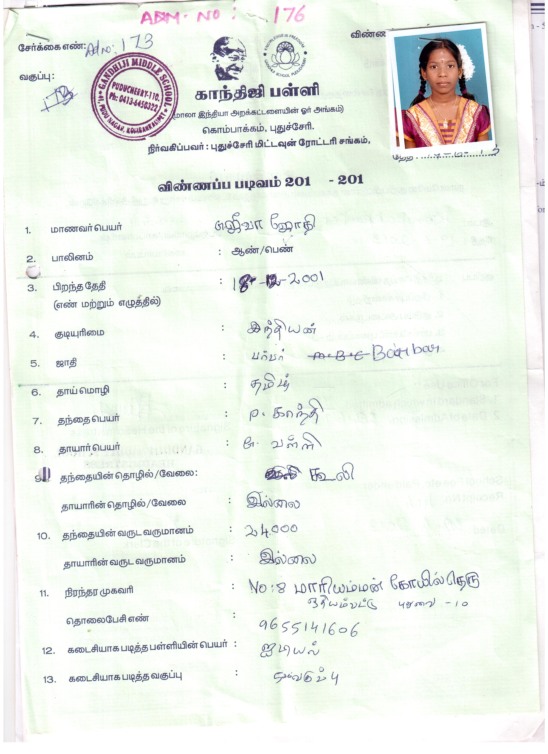 ADM. NO : 176
சேர்க்கை எண்: Adm. 173
விண்
வகுப்பு:
GANDHIJI MIDDLE SCHOOL
PUDUCHERRY-110.
Ph: 0413-6450322
காந்திஜி பள்ளி
(மாலா இந்தியா அறக்கட்டளையின் ஓர் அங்கம்)
கொம்பாக்கம், புதுச்சேரி.
நிர்வகிப்பவர் : புதுச்சேரி மிட்டவுன் ரோட்டரி சங்கம்,
விண்ணப்ப படிவம் 201 - 201
1. மாணவர் பெயர் : ஜீவா ஜோதி
2. பாலினம் : ஆண்/பெண்
3. பிறந்த தேதி : 18-12-2001
(எண் மற்றும் எழுத்தில்)
4. குடியுரிமை : இந்தியன்
5. ஜாதி : பர்பர் MBC Barbar
6. தாய் மொழி : தமிழ்
7. தந்தை பெயர் : P. காந்தி
8. தாயார் பெயர் : வள்ளி
9. தந்தையின் தொழில்/வேலை: கூலி
தாயாரின் தொழில்/வேலை : இல்லை
10. தந்தையின் வருட வருமானம் : 24000
தாயாரின் வருட வருமானம் : இல்லை
11. நிரந்தர முகவரி : NO: 8 மாரியம்மன் கோயில் தெரு
ஒதியம்பட்டு புதுவை - 10
தொலைபேசி எண் : 9655141606
12. கடைசியாக படித்த பள்ளியின் பெயர் : ஐடியல்
13. கடைசியாக படித்த வகுப்பு :